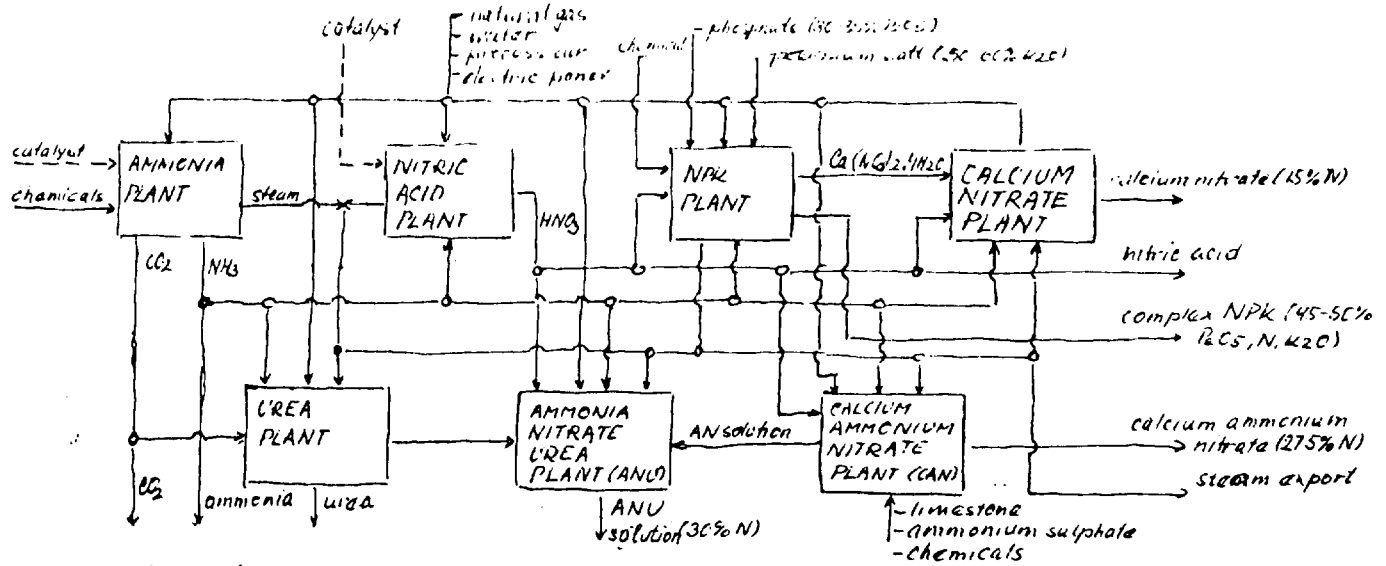 catalyst
- natural gas
- water
- process air
- electric power
chemical
- phosphate
catalyst
chemicals
AMMONIA
PLANT
steam
NITRIC
ACID
PLANT
HNO3
NPK
PLANT
CALCIUM
NITRATE
PLANT
calcium nitrate (15% N)
nitric acid
CO2
NH3
complex NPK (45-50%
P2O5, N, K2O)
UREA
PLANT
AMMONIA
NITRATE
UREA
PLANT (ANU)
AN solution
CALCIUM
AMMONIUM
NITRATE
PLANT (CAN)
calcium ammonium
nitrata (275% N)
steam export
CO2
ammonia
urea
ANU
solution (30% N)
- limestone
- ammonium sulphate
- chemicals